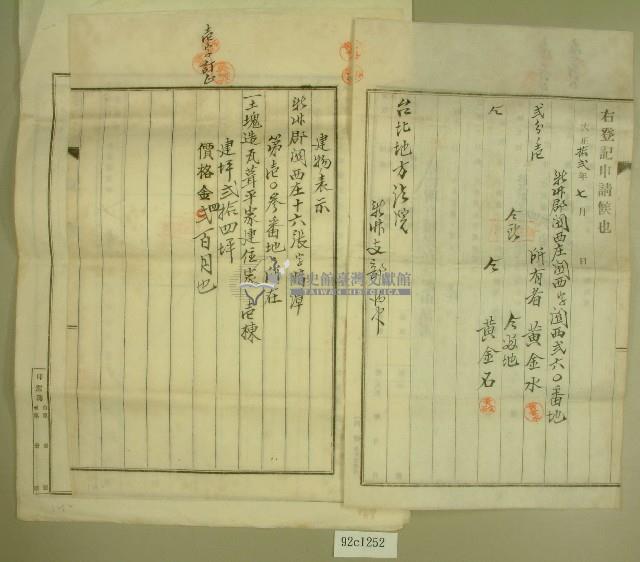 右登記申請候也
大正拾弐年七月 日
新竹郡関西庄関西字関西弐六〇番地
弐分ノ壱 所有者 黄金水
仝所 仝番地
仝 仝 黄金石
台北地方法院
新竹支部 御中
壱字訂正
建物表示
新竹郡関西庄十六張字
第壱〇参番地 所在
一土塊造瓦葺平家建住家 壱棟
建坪弐拾四坪
價格金弐百円也
國史館臺灣文獻館
92c1252